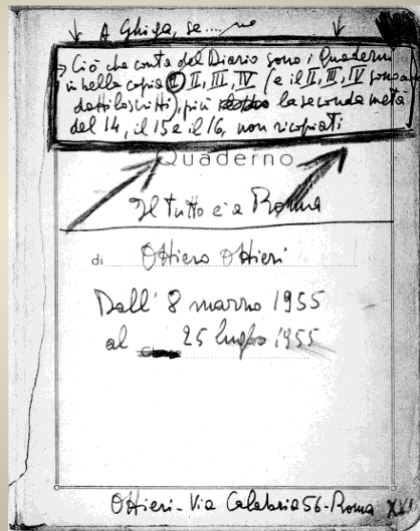 A Ghiga, se....
Ciò che conta del Diario sono i Quaderni
in bella copia I II, III, IV (e il II, III, IV sono a
dattiloscritti), più la seconda metà
del 14, il 15 e il 16, non ricopiati
Quaderno
Il tutto è a Roma
di Ottiero Ottieri
Dall' 8 marzo 1955
al 25 luglio 1955
Ottieri - Via Calabria 56 - Roma XVI